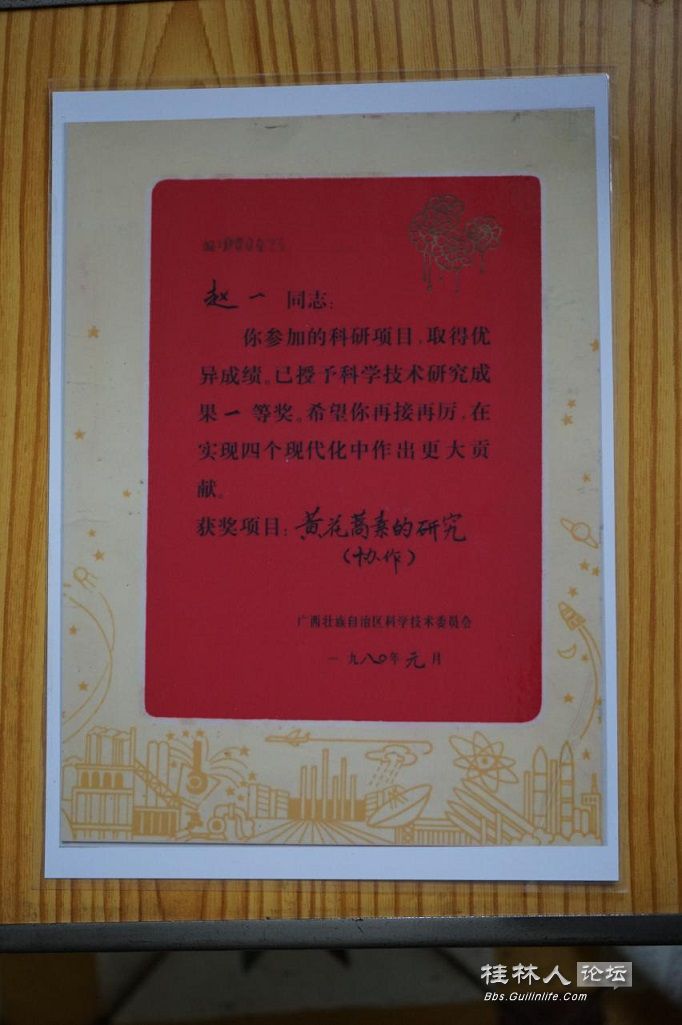 赵一 同志:
你参加的科研项目,取得优
异成绩。已授予科学技术研究成
果一等奖。希望你再接再厉,在
实现四个现代化中作出更大贡
献。
获奖项目:黄花蒿素的研究
(协作)
广西壮族自治区科学技术委员会
一九八〇年元月
桂林人论坛
Bbs.Guilinlife.Com